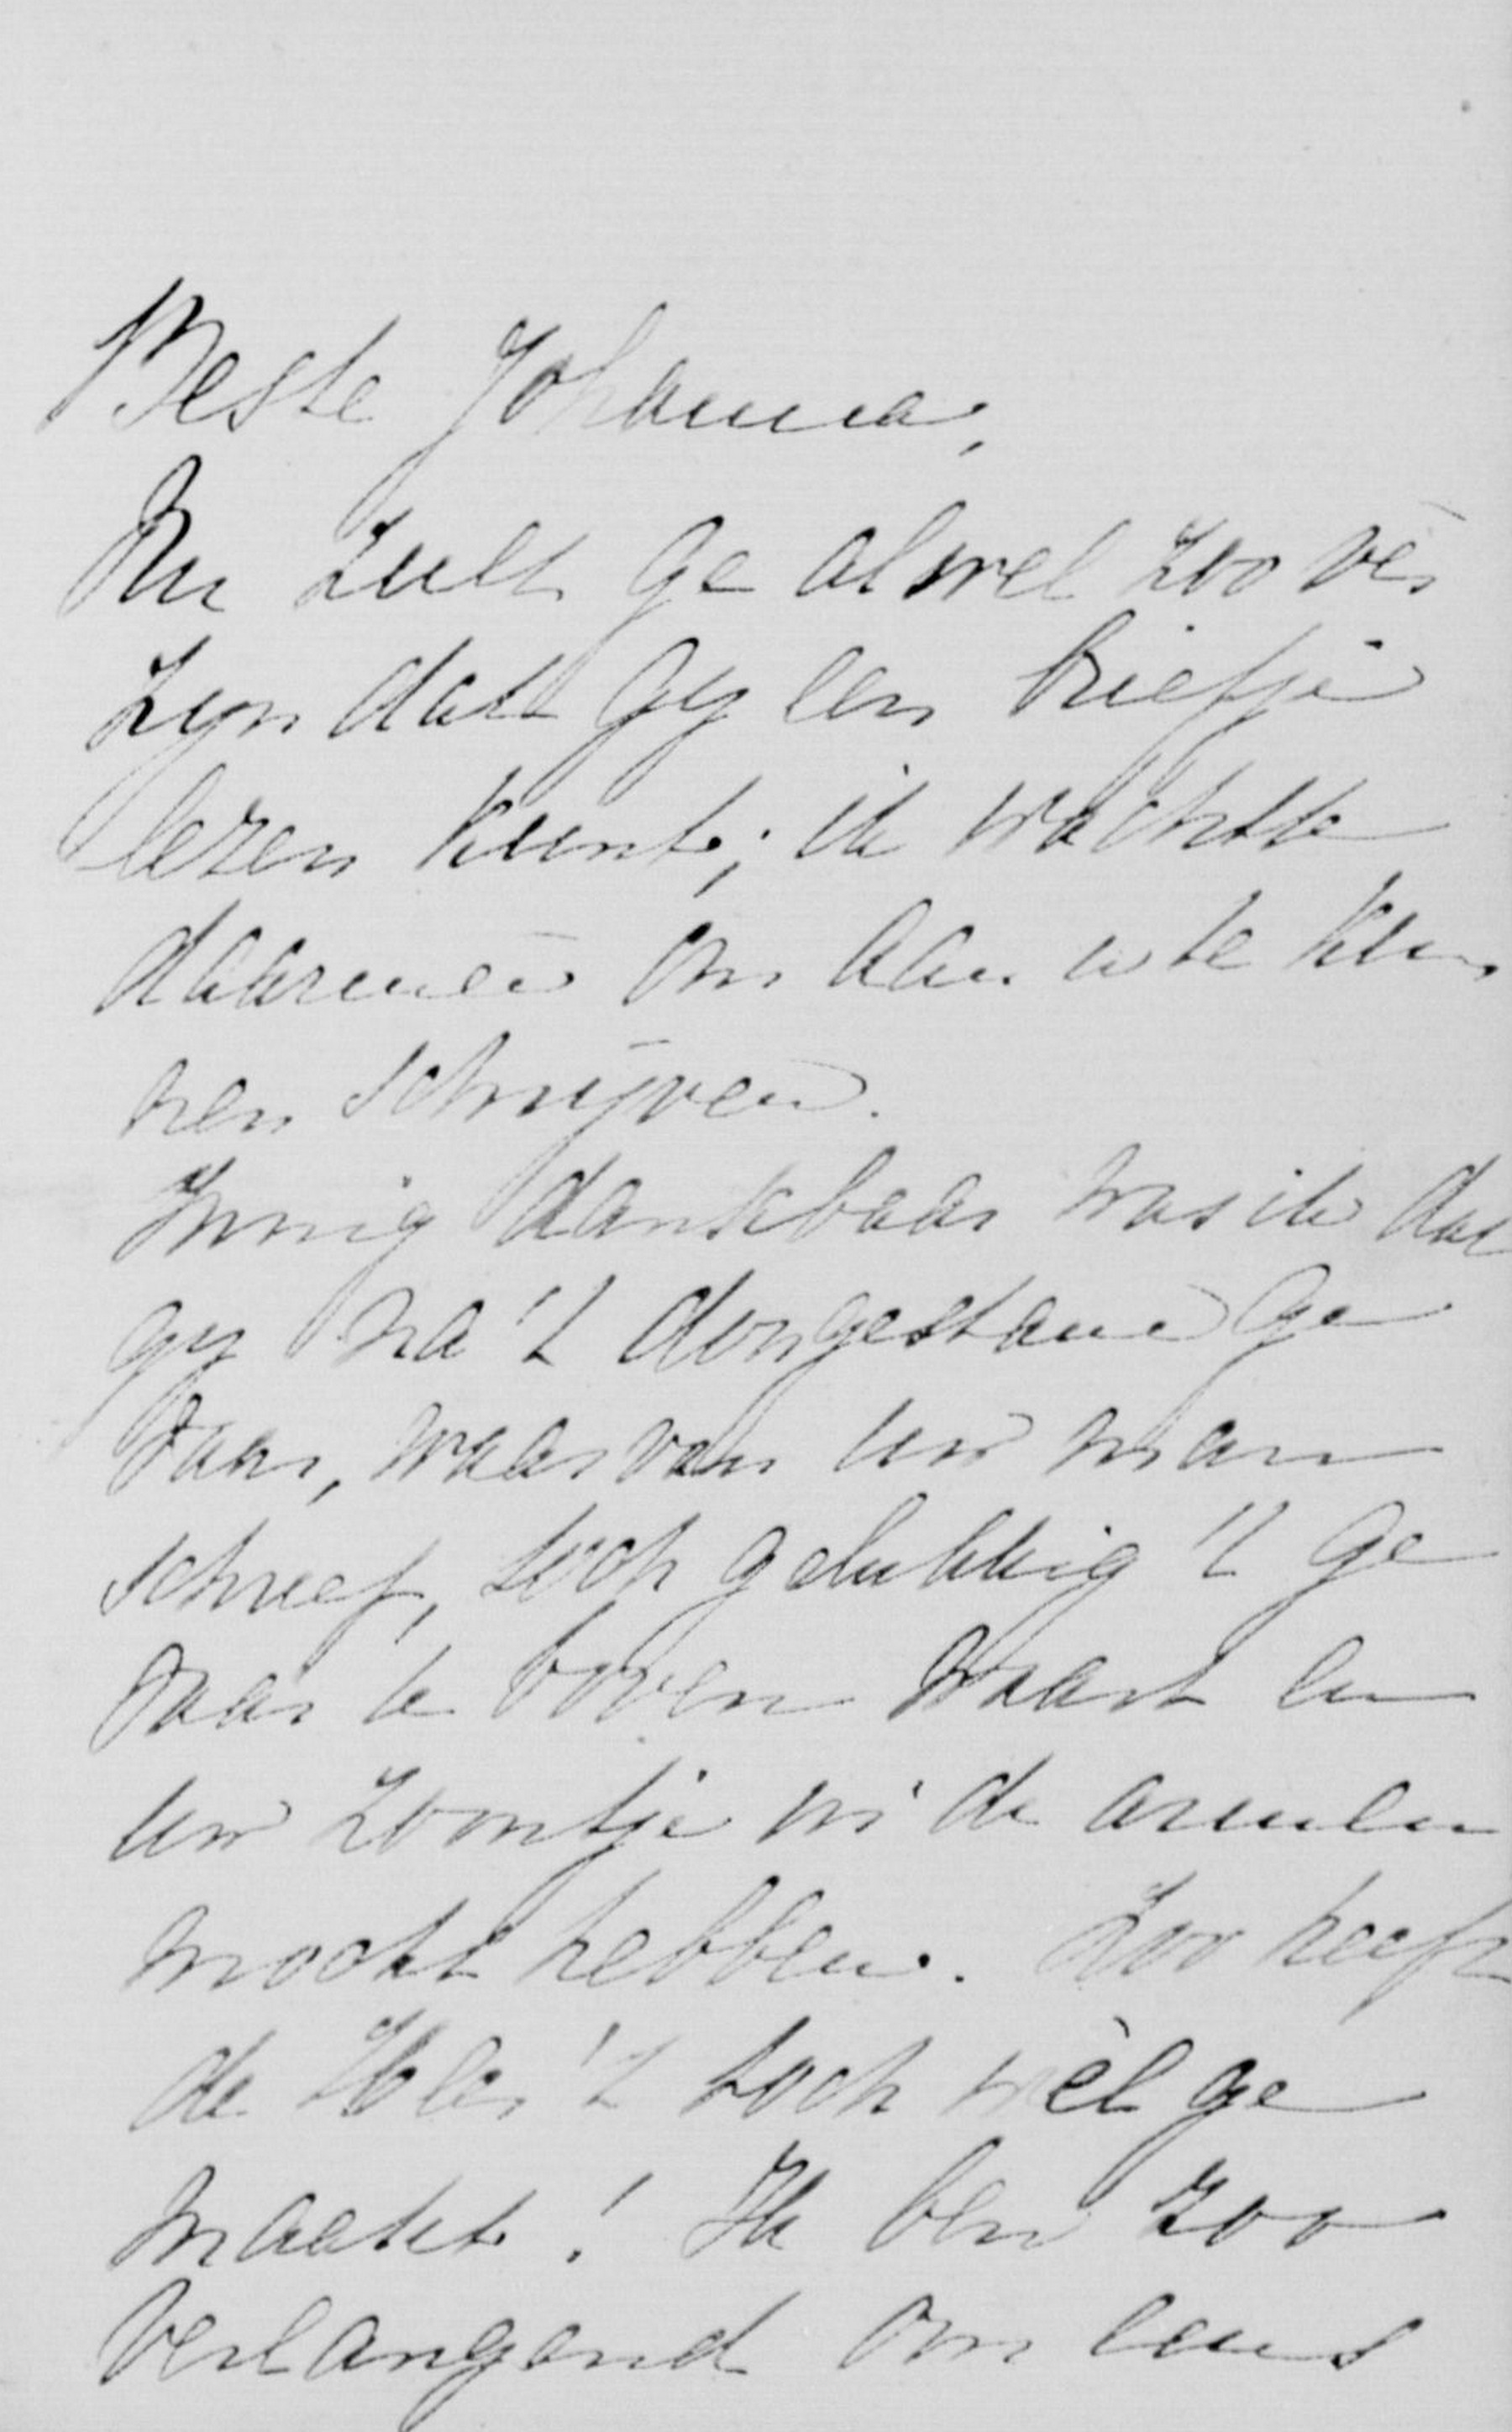 Beste Johanna,
Nu zult ge al wel zoo vèr
zyn dat gy een briefje
lezen kunt; ik wachtte
daarmeê om aan u te kun
nen schrijven.
Innig dankbaar was ik dat
gy na 't doorgestane ge
vaar, waarvan uw man
schreef, toch gelukkig 't ge
vaar te boven waart en
uw zoontje in de armen
mocht hebben. Zoo heeft
de Heer 't toch wèl ge
maakt! Ik ben zoo
verlangend om eens